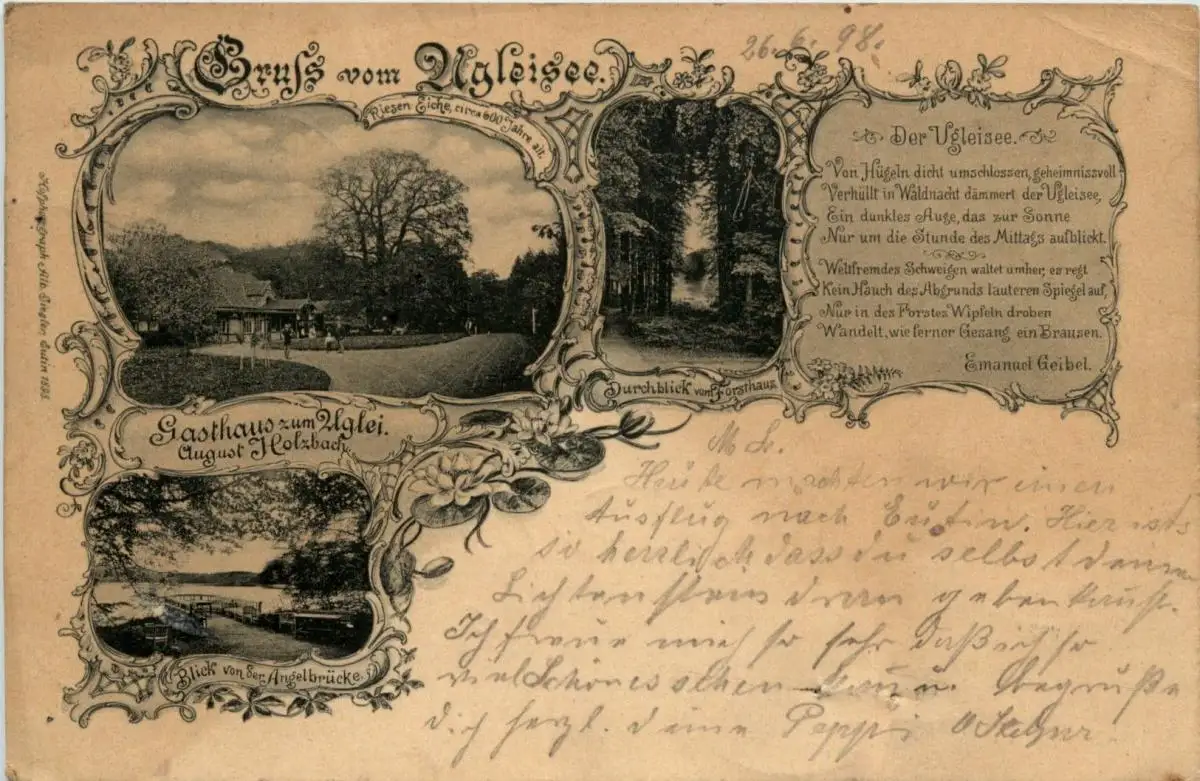 Gruss vom Ugleisee.
26. 6. 98.
Riesen Eiche, circa 600 Jahre alt.
Der Ugleisee.
Von Hügeln dicht umschlossen, geheimnissvoll
Verhüllt in Waldnacht dämmert der Ugleisee,
Ein dunkles Auge, das zur Sonne
Nur um die Stunde des Mittags aufblickt.
Weltfremdes Schweigen waltet umher, es regt
Kein Hauch des Abgrunds lauteren Spiegel auf,
Nur in des Forstes Wipfeln droben
Wandelt, wie ferner Gesang ein Brausen.
Emanuel Geibel.
Durchblick vom Forsthaus
Gasthaus zum Uglei.
August Holzbach.
Blick von der Angelbrücke.
Eutin 1898
M L.
Heute machten wir einen
Ausflug nach Eutin. Hier ist's
so herrlich dass du selbst deinen
Lichtenstein dran geben kannst.
Ich freue mich so sehr daß ich so
viel Schönes sehen kann. begrüße
dich herzl. deine Peppi